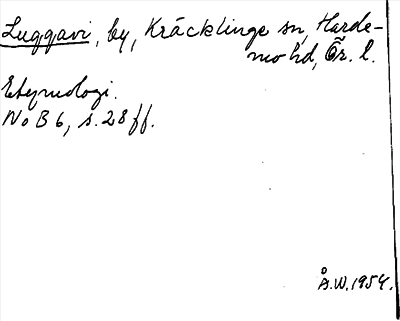 Luggavi, by, Kräcklinge sn, Harde-
mo hd, Ör. l.
Etymologi.
NoB 6, s. 28 ff.
Å.W. 1954.